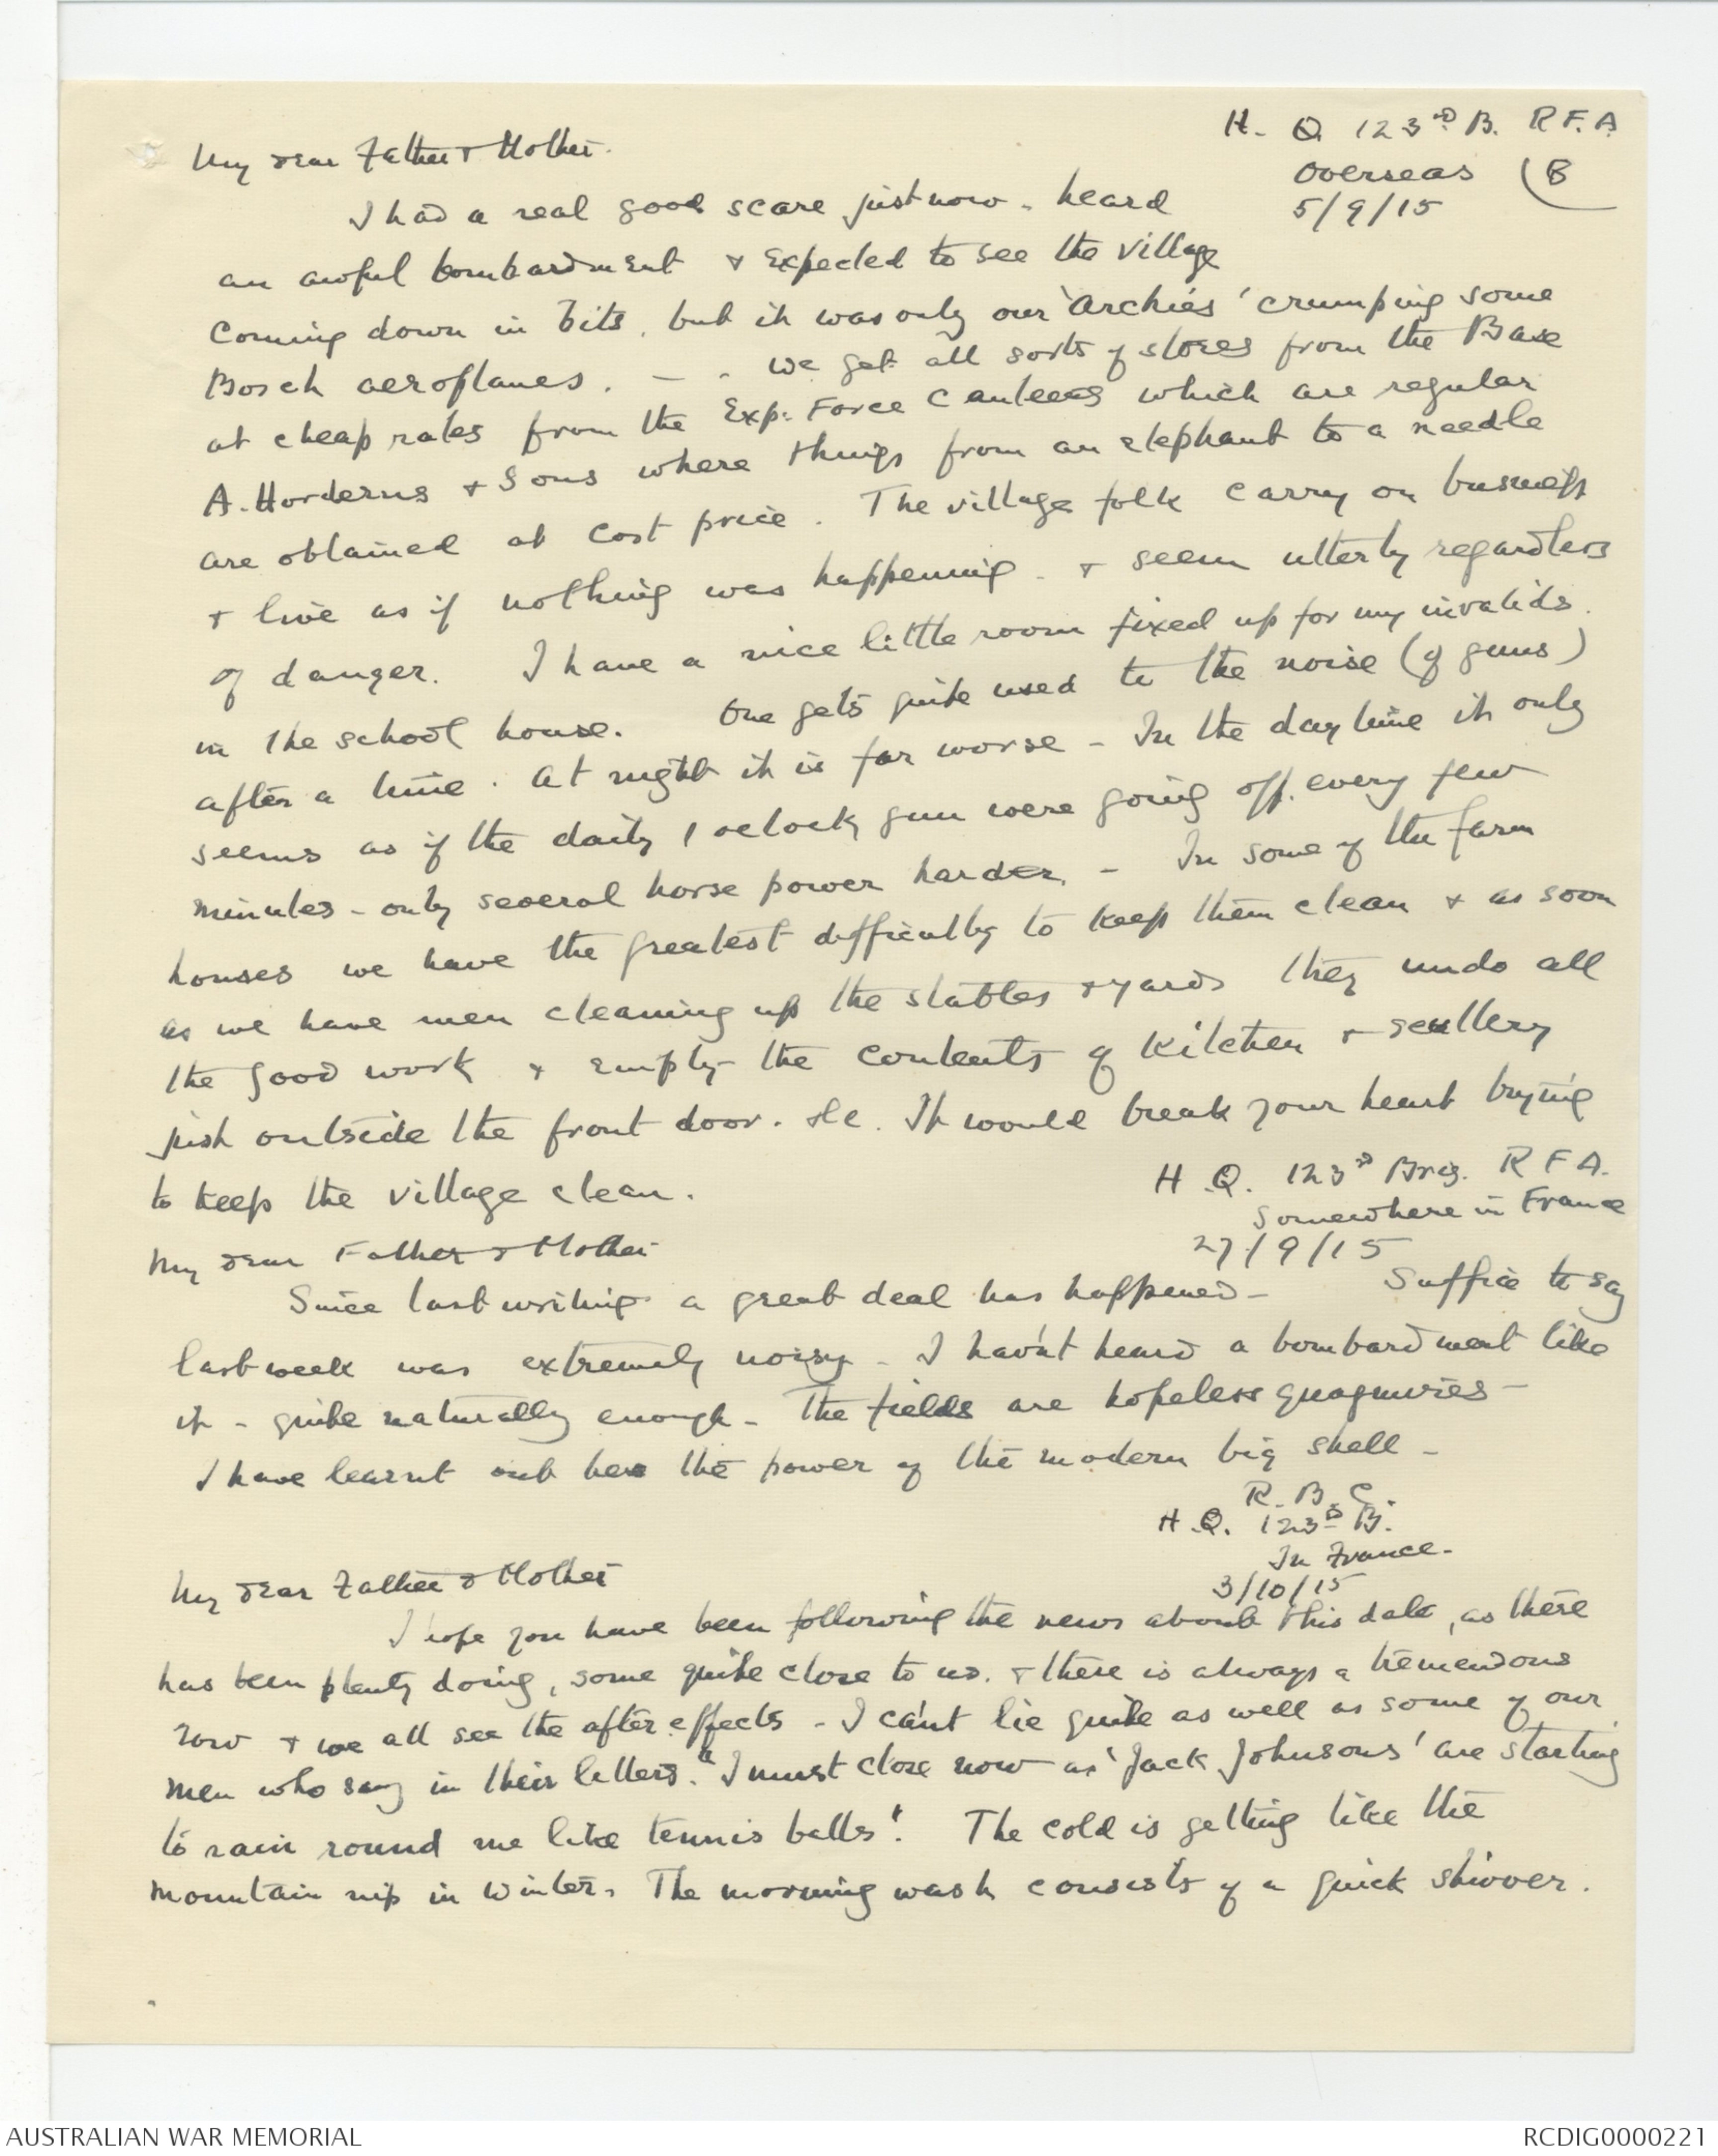 H. Q. 123rd B. R.F.A.
Overseas (B
5/9/15
My dear Father & Mother.
I had a real good scare just now - heard
an awful bombardment & Expected to see the village
coming down in bits, but it was only our 'Archies' crumping some
Bosch aeroplanes. - - we get all sorts of stores from the Base
at cheap rates from the Exp. Force Canteens which are regular
A. Horderns & Sons where things from an elephant to a needle
are obtained at cost price. The village folk carry on business
& live as if nothing was happening - & seem utterly regardless
of danger. I have a nice little room fixed up for my invalids.
in the school house. One gets quite used to the noise (of guns)
after a time. At night it is far worse - In the daytime it only
seems as if the daily 1 oclock gun were going off every few
minutes - only several horse power harder. - In some of the farm
houses we have the greatest difficulty to keep them clean & as soon
as we have men cleaning up the stables & yards they undo all
the good work & empty the contents of kitchen & scullery
just outside the front door. etc. It would break your heart trying
to keep the village clean.
H.Q. 123rd Brig. R F A.
Somewhere in France
27/9/15
My dear Father & Mother
Since last writing a great deal has happened - Suffice to say
last week was extremely noisy - I hav'nt heard a bombardment like
it - quite naturally enough - The fields are hopeless quagmires -
I have learnt out here the power of the modern big shell -
R. B. C.
H.Q. 123rd B.
In France.
3/10/15
My dear Father & Mother
I hope you have been following the news about this date, as there
has been plenty doing, some quite close to us. & there is always a tremendous
row & we all see the after effects - I can't lie quite as well as some of our
men who say in their letters. "I must close now as 'Jack Johnsons' are starting
to rain round me like tennis balls". The cold is getting like the
mountain nip in winter. The morning wash consists of a quick shiver.
AUSTRALIAN WAR MEMORIAL
RCDIG0000221